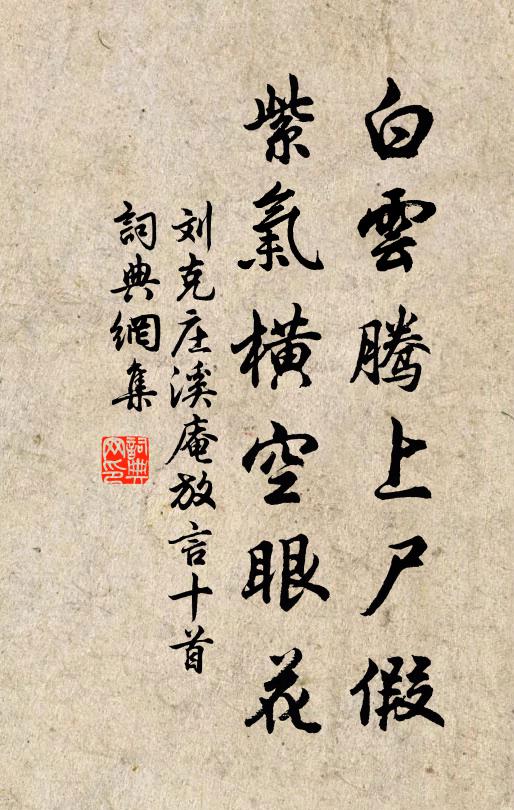 白雲騰上尸假
紫氣橫空眼花
刘克庄溪庵放言十首
詞典網集
詞典网印